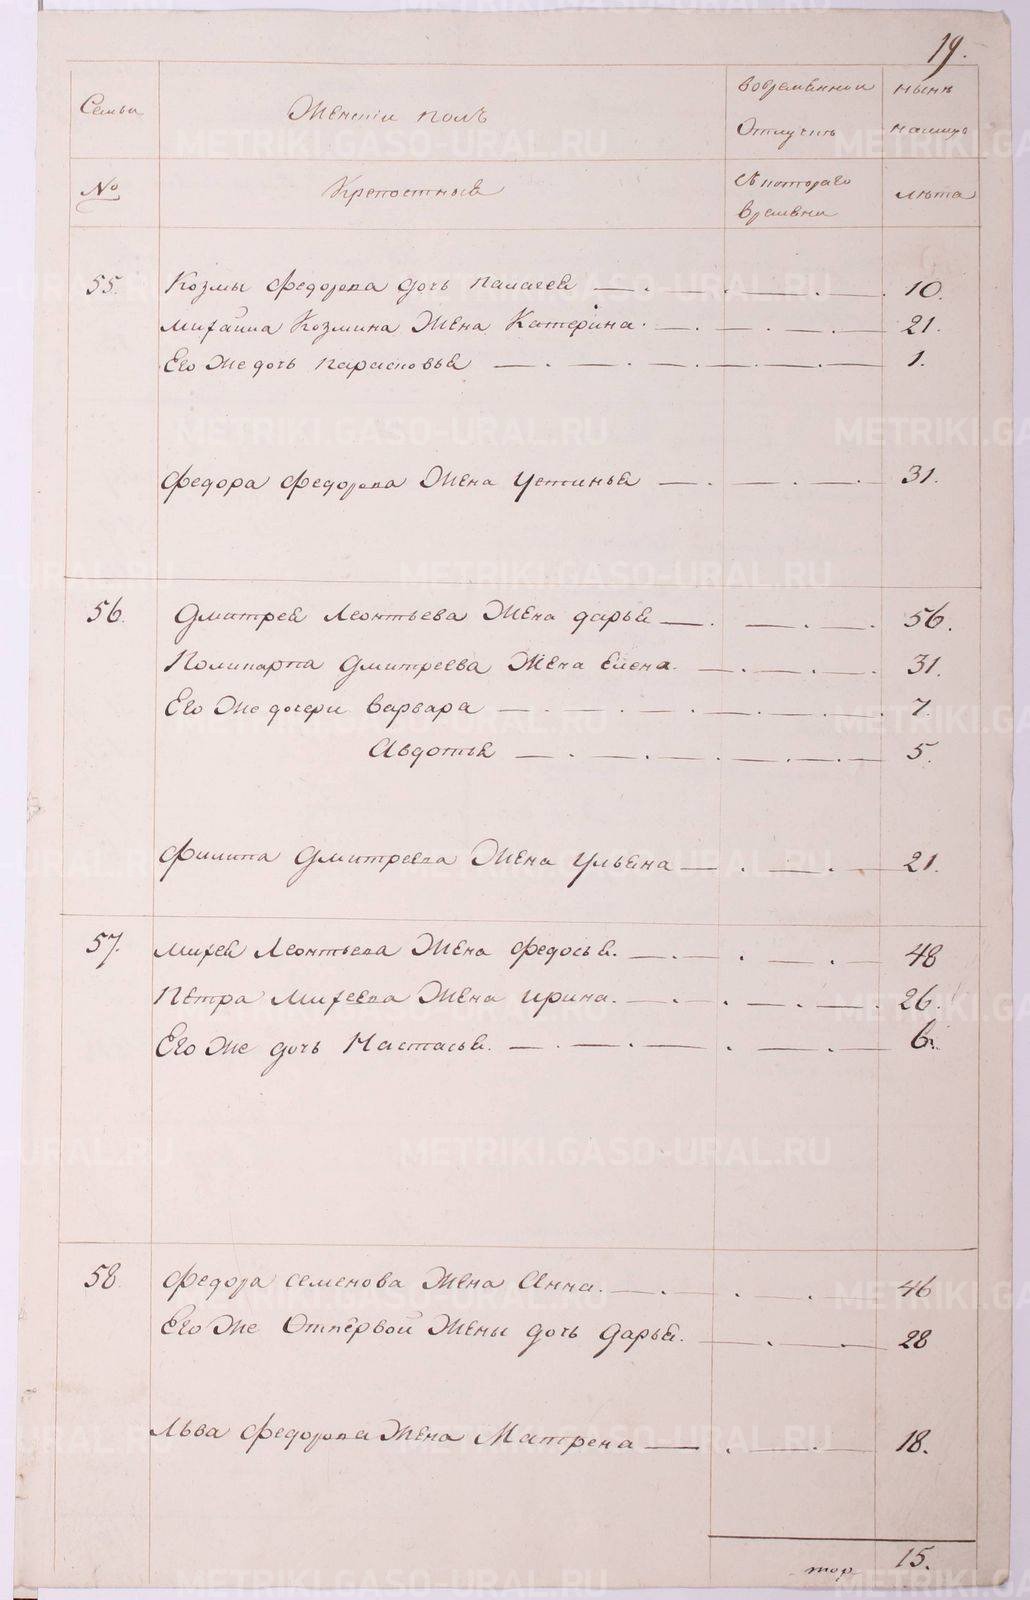 19.
Семьи Женскiй полъ Вовременной нынѣ
Отлучкѣ налицо
№ Крепостныя Скотораго лѣта
времени
55. Козмы Федорова дочь Палагея 10.
Михайла Козмина Жена Катерина. 21.
Его же дочь Парасковья 1.
Федора Федорова Жена Устинья 31.
56. Дмитрея Леонтьева Жена Дарья 56.
Поликарпа Дмитреева Жена Елена. 31.
Его же дочери Варвара 7.
Авдотья 5.
Филипа Дмитреева Жена Ульяна 21.
57. Михея Леонтьева Жена Федосья. 48
Петра Михеева Жена Ирина. 26.
Его же дочь Настасья. 6.
58. Федора Семенова Жена Анна. 46
Его же Отпервой Жены дочь Дарья. 28
Льва Федорова Жена Матрена 18.
15.
METRIKI.GASO-URAL.RU